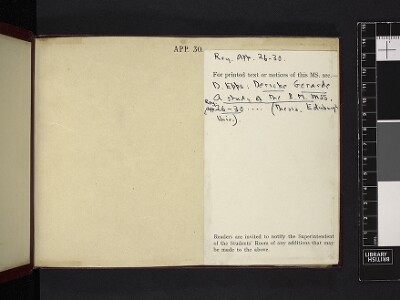 APP. 30.
Roy. App. 26-30.
For printed text or notices of this MS. see:—
D. Epps: Dericke Gerarde
A study of the B.M. MSS.
Roy. App 26-30 .... (Thesis. Edinburgh
Univ.)
Readers are invited to notify the Superintendent
of the Students' Room of any additions that may
be made to the above.
BRITISH
LIBRARY